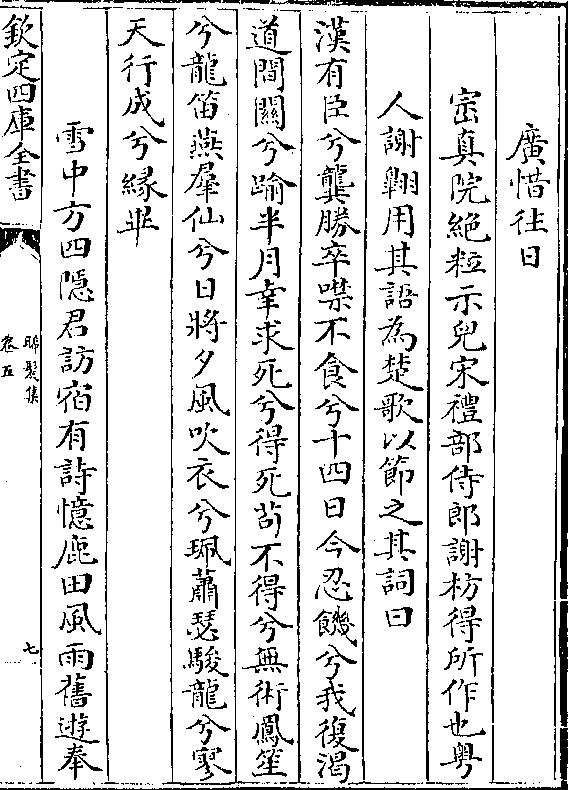 廣惜往日
宻真院絶粒示兒宋禮部侍郎謝枋得所作也粤
人謝翺用其語為楚歌以節之其詞曰
漢有臣兮龔勝卒噤不食兮十四日今忍饑兮我復渴
道間關兮踰半月幸求死兮得死茍不得兮無術鳳笙
兮龍笛燕羣仙兮日將夕風吹衣兮珮蕭瑟駿龍兮寥
天行成兮縁畢
雪中方四隠君訪宿有詩憶鹿田風雨舊遊奉
欽定四庫全書
晞髮集
卷五
七